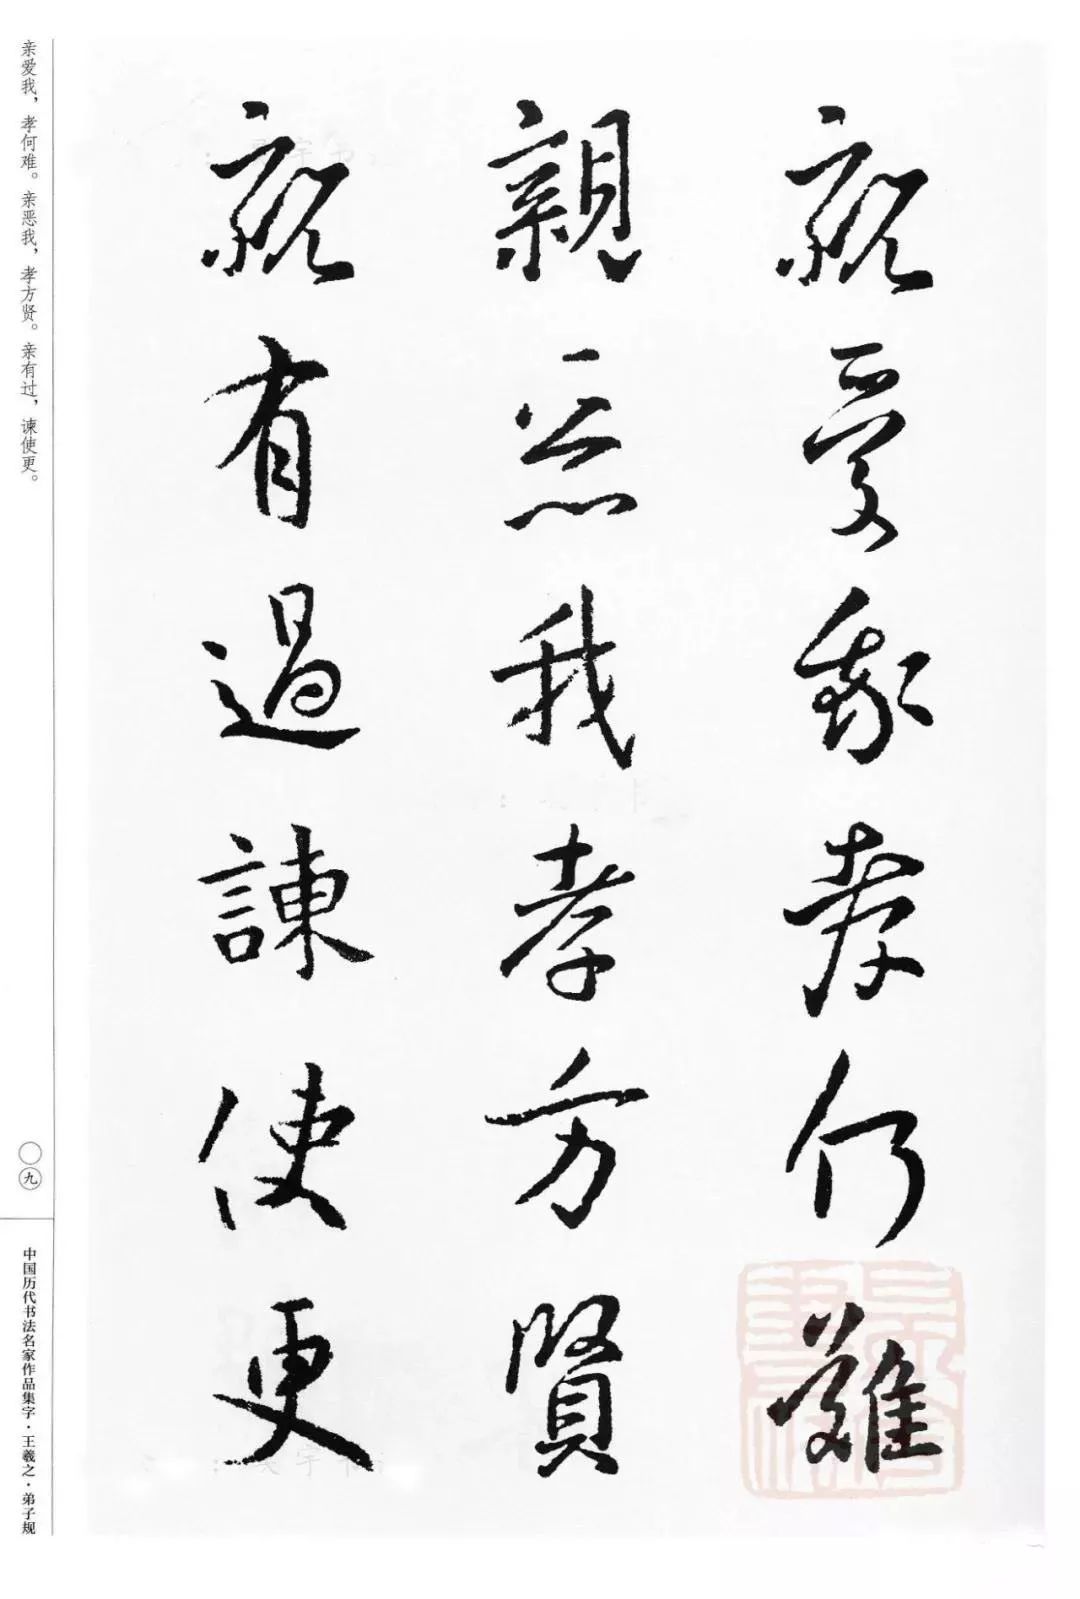 親愛我孝何難
親惡我孝方賢
親有過諫使更
亲爱我，孝何难。亲恶我，孝方贤。亲有过，谏使更。
〇九
中国历代书法名家作品集字·王羲之·弟子规